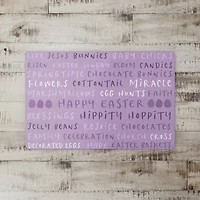 JOY JESUS BUNNIES BABY CHICKS
RISEN EASTER SUNDAY BLOOM CANDIES
SPRINGTIME CHOCOLATE BUNNIES
FLOWERS COTTONTAIL MIRACLE
MARSHMALLOWS EGG HUNTS FAITH
HAPPY EASTER
BLESSINGS HIPPITY HOPPITY
JELLY BEANS REJOICE CHOCOLATES
FAMILY CELEBRATION CHURCH CROSS
DECORATED EGGS HOPE EASTER BASKETS